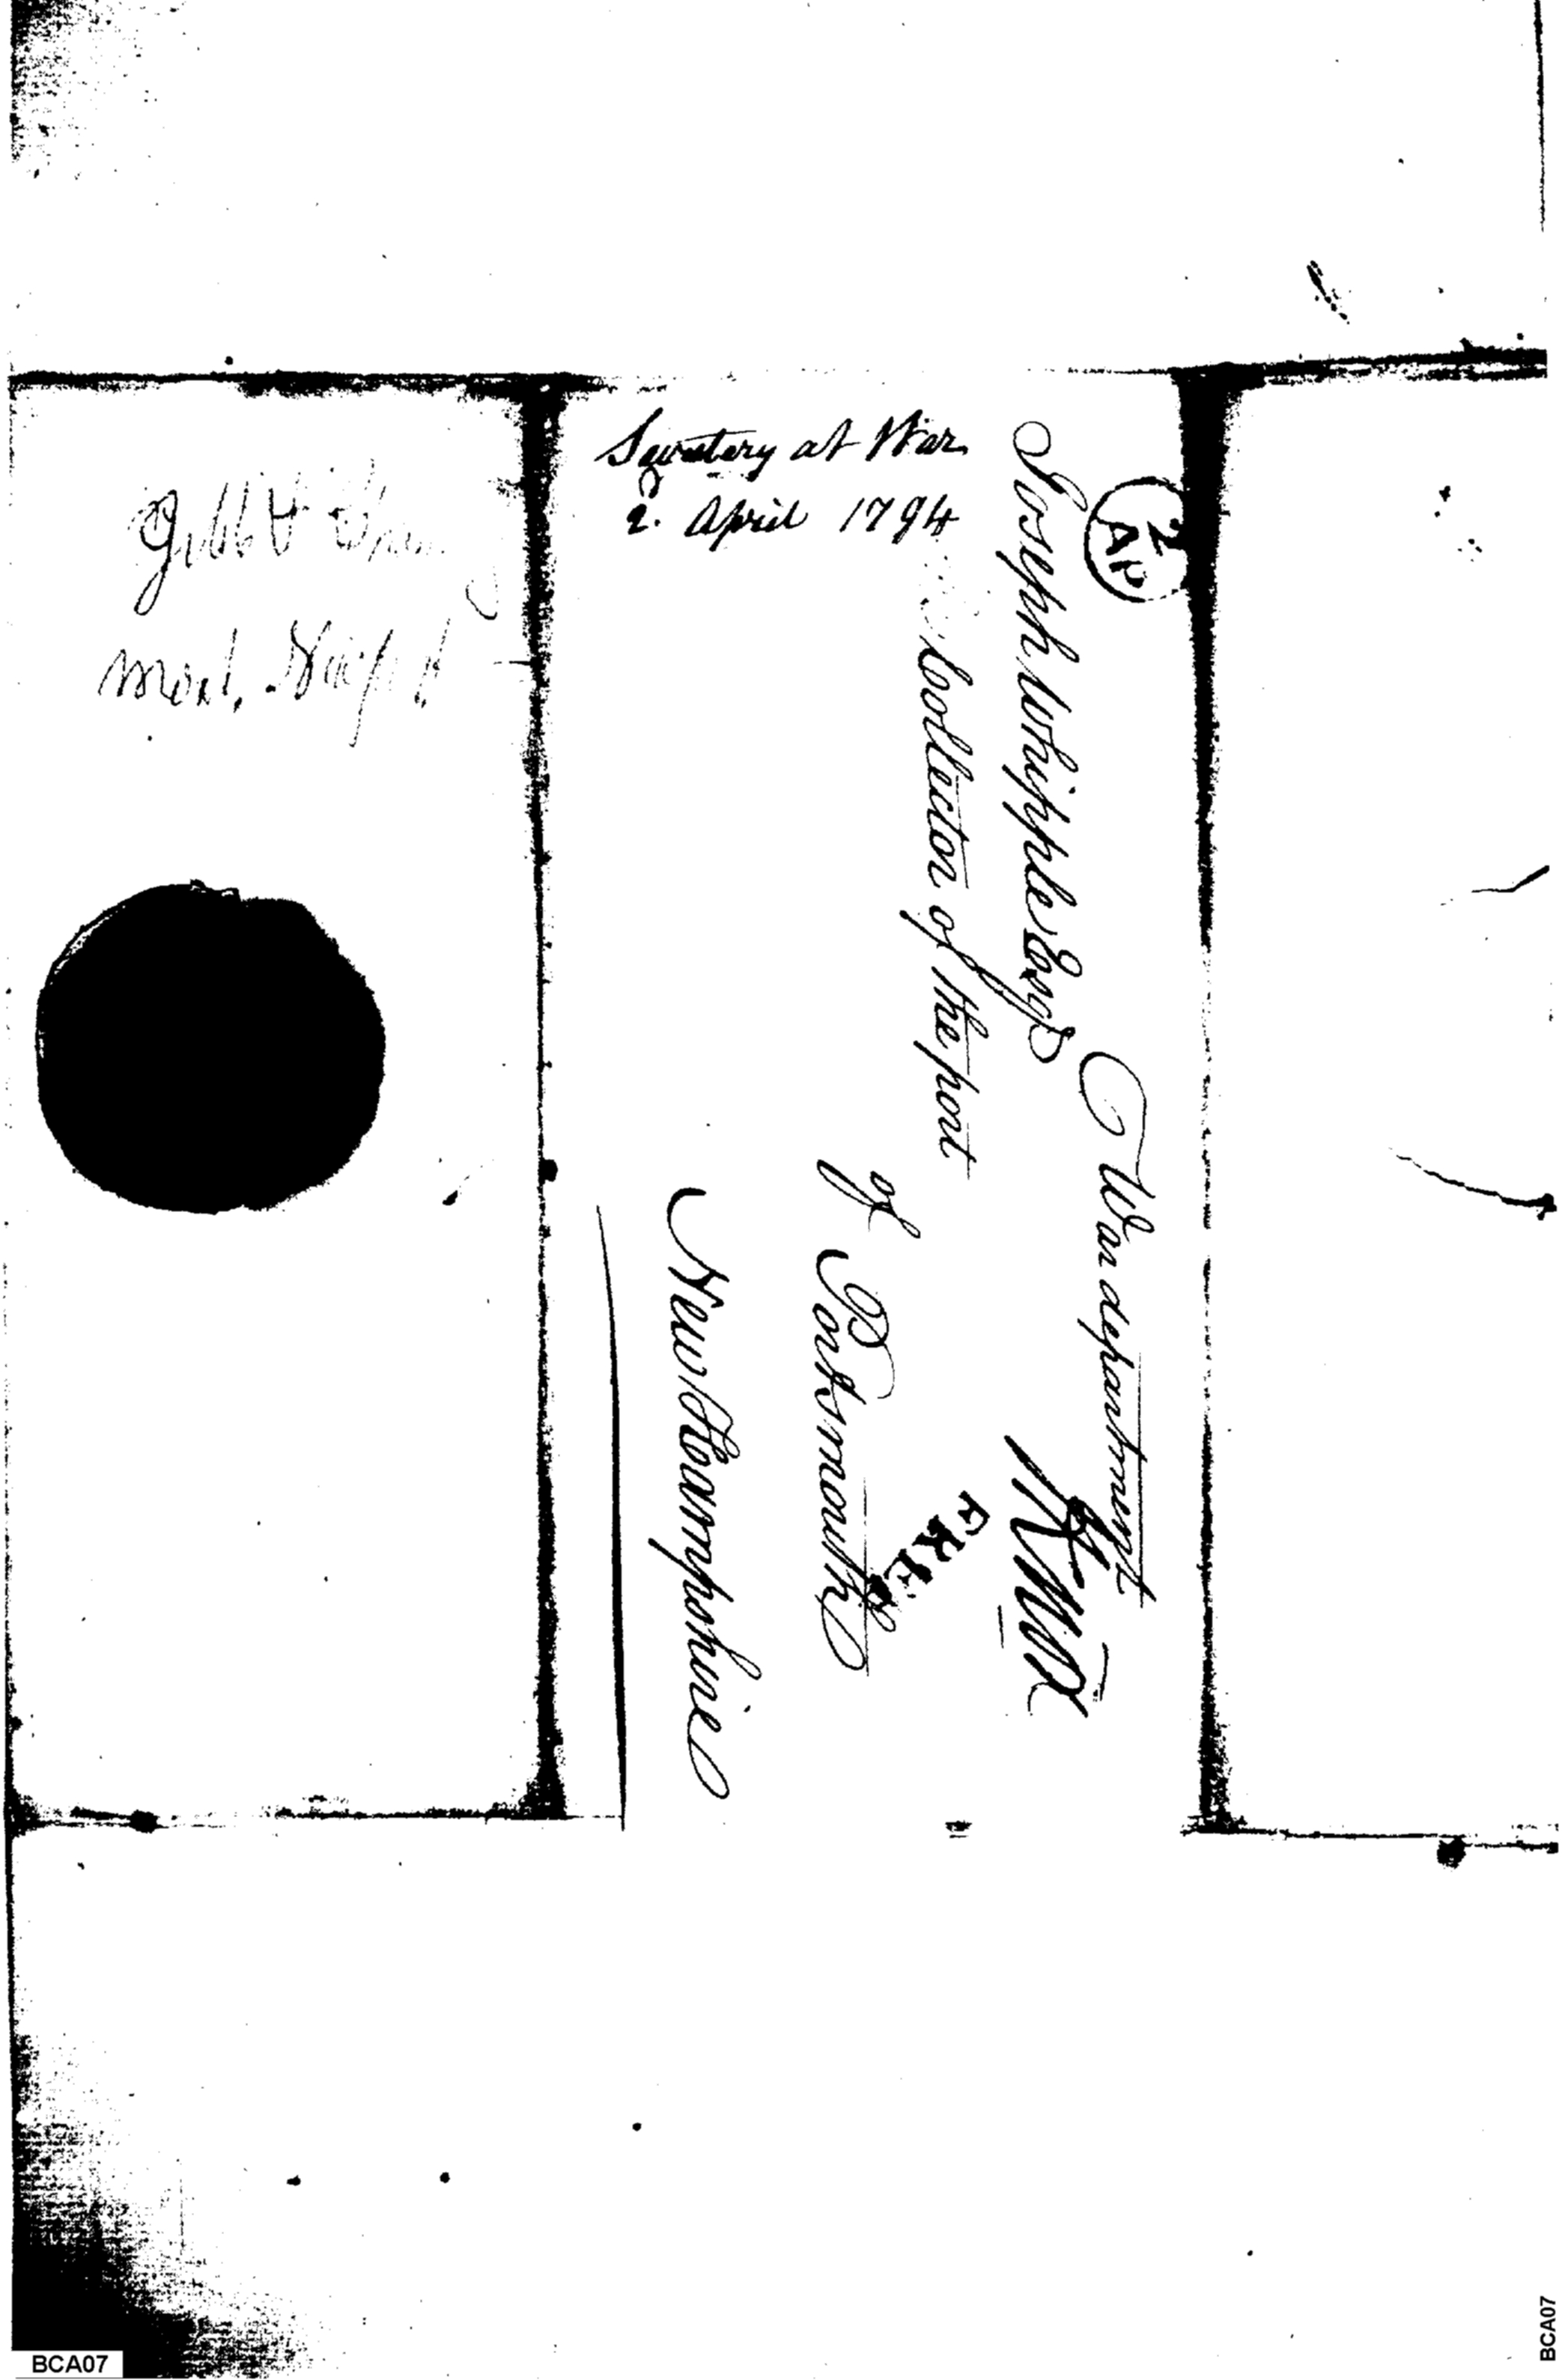 Secretary at War
2. April 1794
2
AP
War department
Joseph Whipple Esqr
Collector of the port
of Portsmouth
New Hampshire
FREE
BCA07
BCA07